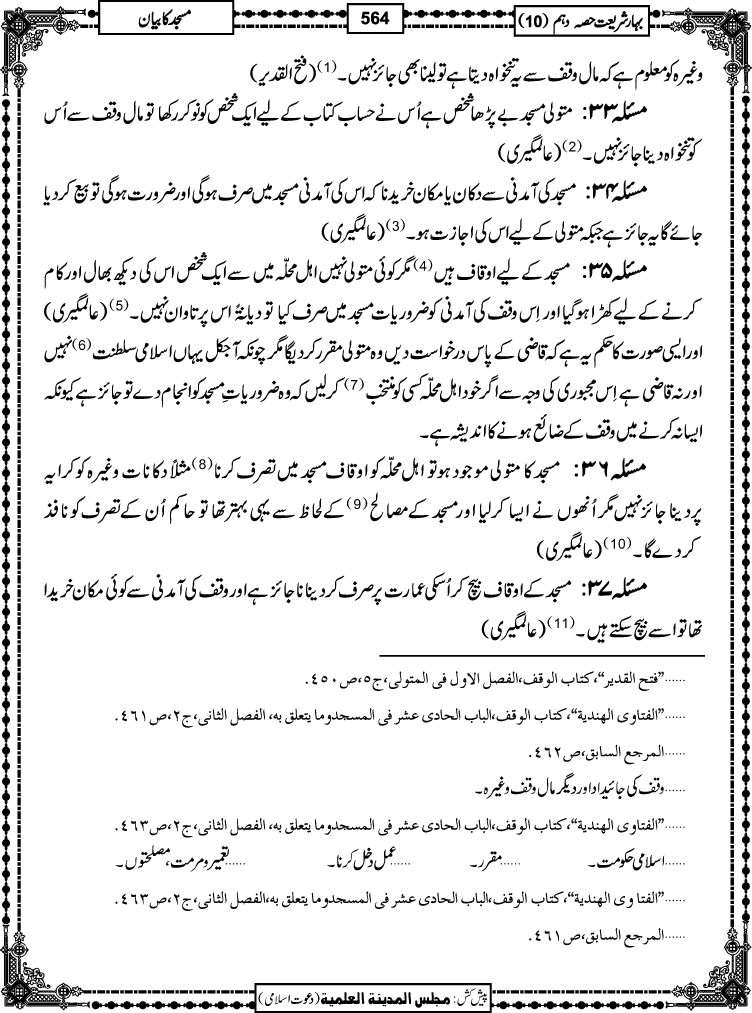 بہارِ شریعت حصہ دہم (10)
564
مسجد کا بیان
وغیرہ کو معلوم ہے کہ مال وقف سے یہ تنخواہ دیتا ہے تو لینا بھی جائز نہیں۔(1) (فتح القدیر)
مسئلہ ۳۳: متولی مسجد بے پڑھا شخص ہے اُس نے حساب کتاب کے لیے ایک شخص کو نوکر رکھا تو مال وقف سے اُس
کو تنخواہ دینا جائز نہیں۔(2) (عالمگیری)
مسئلہ ۳۴: مسجد کی آمدنی سے دکان یا مکان خریدنا کہ اس کی آمدنی مسجد میں صرف ہوگی اور ضرورت ہوگی تو بیع کردیا
جائے گا یہ جائز ہے جبکہ متولی کے لیے اس کی اجازت ہو۔(3) (عالمگیری)
مسئلہ ۳۵: مسجد کے لیے اوقاف ہیں(4) مگر کوئی متولی نہیں اہل محلّہ میں سے ایک شخص اس کی دیکھ بھال اور کام
کرنے کے لیے کھڑا ہوگیا اور اِس وقف کی آمدنی کو ضروریات مسجد میں صرف کیا تو دیانۃً اس پر تاوان نہیں۔(5) (عالمگیری)
اور ایسی صورت کا حکم یہ ہے کہ قاضی کے پاس درخواست دیں وہ متولی مقرر کردیگا مگر چونکہ آجکل یہاں اسلامی سلطنت(6) نہیں
اور نہ قاضی ہے اِس مجبوری کی وجہ سے اگر خود اہل محلّہ کسی کو منتخب(7) کرلیں کہ وہ ضروریاتِ مسجد کو انجام دے تو جائز ہے کیونکہ
ایسا نہ کرنے میں وقف کے ضائع ہونے کا اندیشہ ہے۔
مسئلہ ۳۶: مسجد کا متولی موجود ہو تو اہل محلّہ کو اوقاف مسجد میں تصرف کرنا(8) مثلاً دکانات وغیرہ کو کرایہ
پر دینا جائز نہیں مگر اُنھوں نے ایسا کرلیا اور مسجد کے مصالح(9) کے لحاظ سے یہی بہتر تھا تو حاکم اُن کے تصرف کو نافذ
کردے گا۔(10) (عالمگیری)
مسئلہ ۳۷: مسجد کے اوقاف بیچ کر اُسکی عمارت پر صرف کردینا ناجائز ہے اور وقف کی آمدنی سے کوئی مکان خریدا
تھا تو اسے بیچ سکتے ہیں۔(11) (عالمگیری)
......"فتح القدیر"،کتاب الوقف،الفصل الاول فی المتولی،ج٥،ص٤٥٠.
......"الفتاوی الھندیة"،کتاب الوقف،الباب الحادی عشر فی المسجدوما یتعلق به، الفصل الثانی،ج٢،ص٤٦١.
......المرجع السابق،ص٤٦٢.
......وقف کی جائیداد اور دیگر مال وقف وغیرہ۔
......"الفتاوی الھندیة"،کتاب الوقف،الباب الحادی عشر فی المسجدوما یتعلق به، الفصل الثانی،ج٢،ص٤٦٣.
......اسلامی حکومت۔ ......مقرر۔ ......عمل دخل کرنا۔ ......تعمیر ومرمت، مصلحتوں۔
......"الفتا وی الھندیة"،کتاب الوقف،الباب الحادی عشر فی المسجدوما یتعلق به،الفصل الثانی،ج٢،ص٤٦٣.
......المرجع السابق،ص٤٦١.
پیش کش: مجلس المدینة العلمیة (دعوت اسلامی)